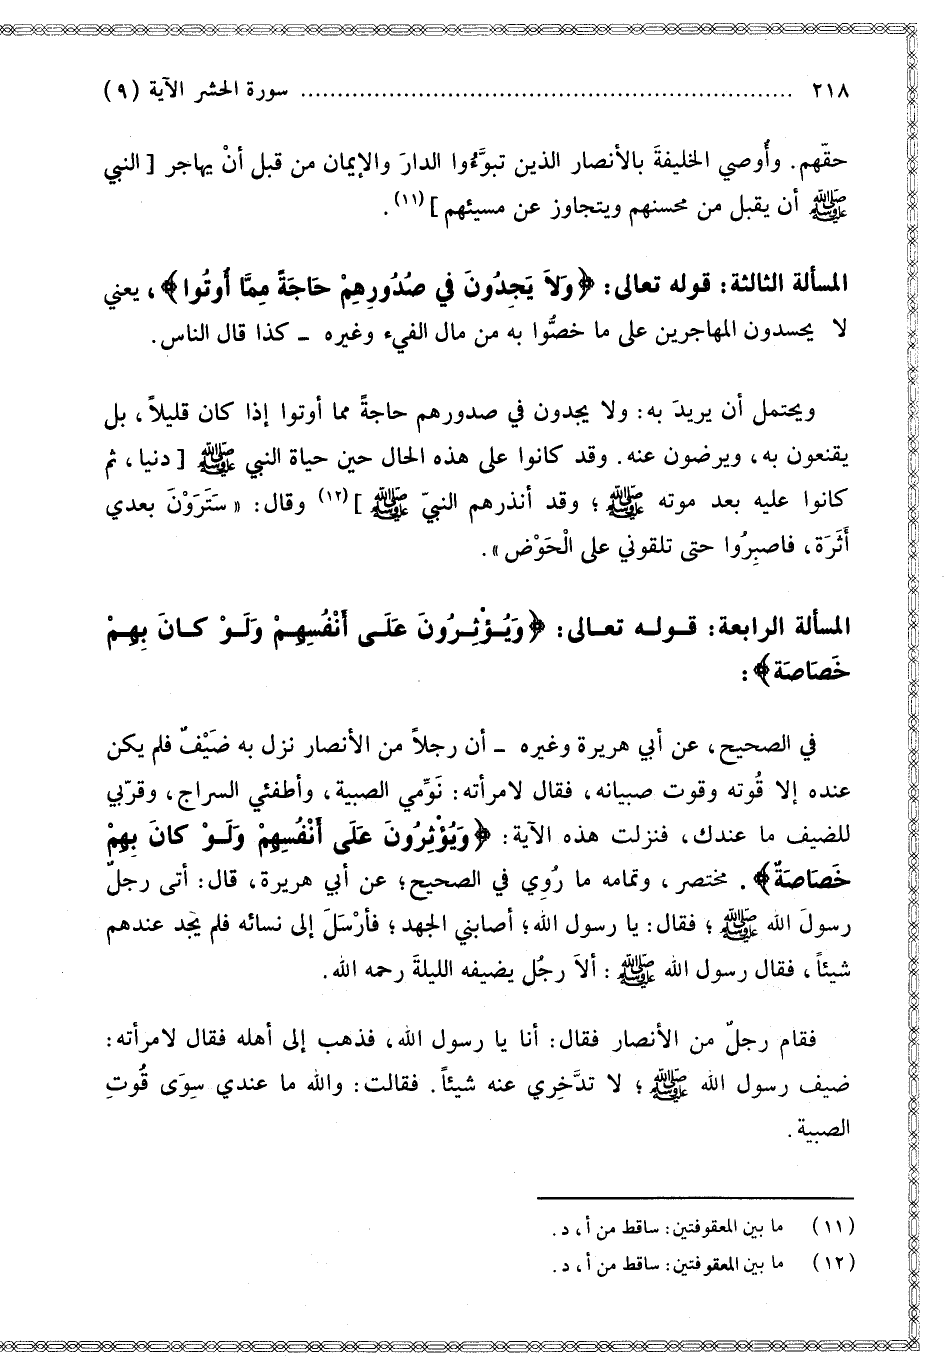 ٢١٨ ................................................................ سورة الحشر الآية (٩)
حقّهم. وأُوصي الخليفةَ بالأنصار الذين تبوَّءُوا الدارَ والإيمان من قبل أنْ يهاجر [النبي
ﷺ أن يقبل من محسنهم ويتجاوز عن مسيئهم](١١).
المسألة الثالثة: قوله تعالى: ﴿وَلاَ يَجِدُونَ في صُدُورِهِمْ حَاجَةً مِمَّا أُوتُوا﴾، يعني
لا يحسدون المهاجرين على ما خصُّوا به من مال الفيء وغيره ـ كذا قال الناس.
ويحتمل أن يريدَ به: ولا يجدون في صدورهم حاجةً مما أوتوا إذا كان قليلاً، بل
يقنعون به، ويرضون عنه. وقد كانوا على هذه الحال حين حياة النبي ﷺ [دنيا، ثم
كانوا عليه بعد موته ﷺ؛ وقد أنذرهم النبيّ ﷺ](١٢) وقال: «سَتَرَوْنَ بعدي
أَثَرَة، فاصبِرُوا حتى تلقوني على الْحَوْض».
المسألة الرابعة: قوله تعالى: ﴿وَيُؤْثِرُونَ عَلَى أَنْفُسِهِمْ وَلَوْ كانَ بِهِمْ
خَصَاصَة﴾:
في الصحيح، عن أبي هريرة وغيره ـ أن رجلاً من الأنصار نزل به ضَيْفٌ فلم يكن
عنده إلا قُوته وقوت صبيانه، فقال لامرأته: نَوِّمي الصبية، وأطفئي السراج، وقرّبي
للضيف ما عندك، فنزلت هذه الآية: ﴿وَيُؤْثِرُونَ عَلَى أَنْفُسِهِمْ وَلَوْ كانَ بِهِمْ
خَصَاصَةٌ﴾. مختصر، وتمامه ما رُوِي في الصحيح؛ عن أبي هريرة، قال: أتى رجلٌ
رسولَ الله ﷺ؛ فقال: يا رسول الله؛ أصابني الجهد؛ فأرْسَلَ إلى نسائه فلم يجد عندهم
شيئاً، فقال رسول الله ﷺ: ألاَ رجُل يضيفه الليلةَ رحمه الله.
فقام رجلٌ من الأنصار فقال: أنا يا رسول الله، فذهب إلى أهله فقال لامرأته:
ضيف رسول الله ﷺ؛ لا تدَّخِري عنه شيئاً. فقالت: والله ما عندي سِوَى قُوتِ
الصبية.
(١١) ما بين المعقوفتين: ساقط من أ، د.
(١٢) ما بين المعقوفتين: ساقط من أ، د.